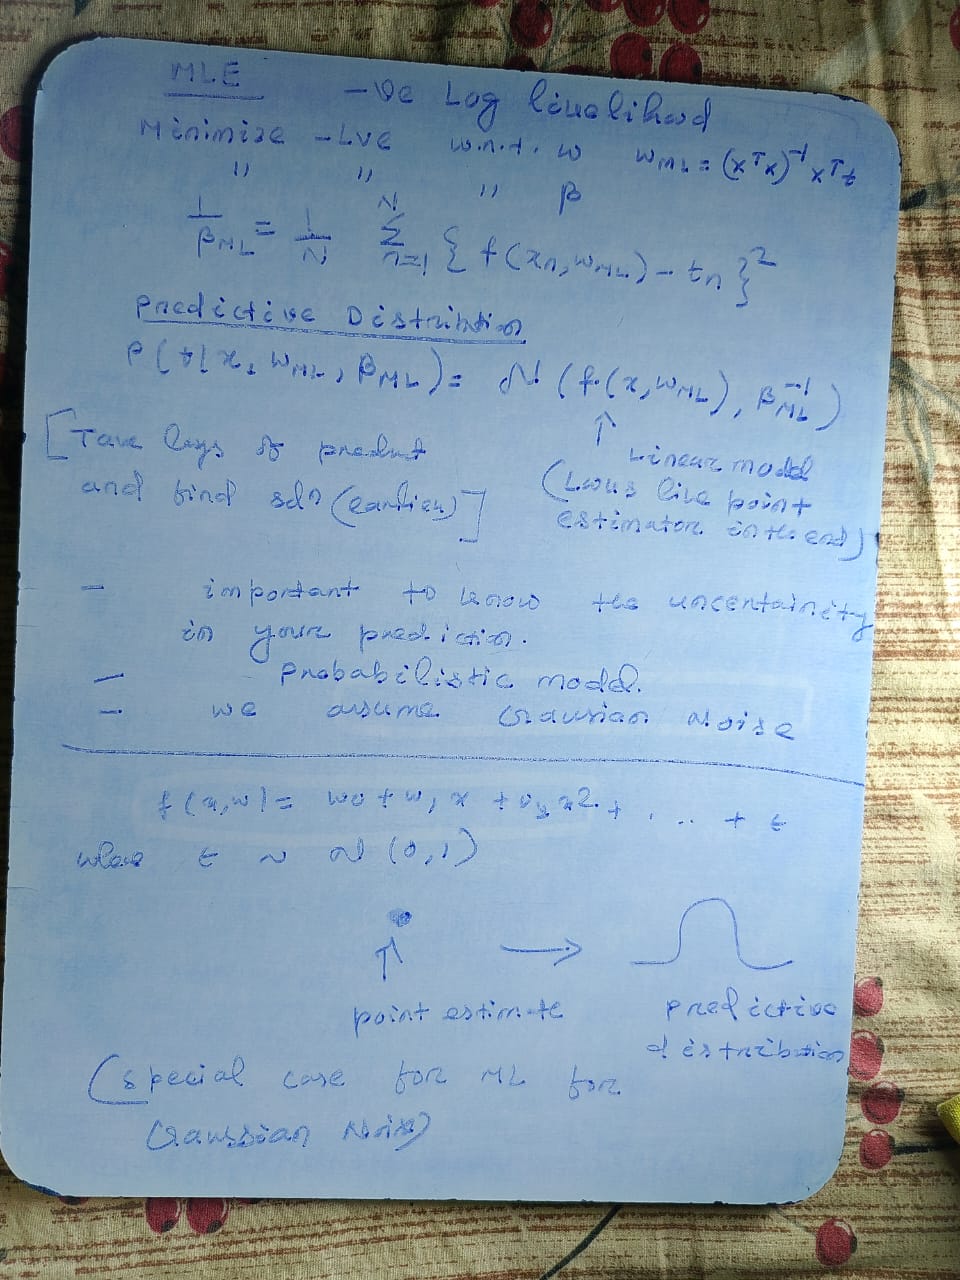 MLE -ve Log likelihood
Minimise -Lve w.r.t. w w_ML = (x^T x)^-1 x^T t
" " " β
1/β_ML = 1/N Σ_{n=1}^{N} { f(x_n, w_ML) - t_n }^2
Predictive Distribution
P(t|x, w_ML, β_ML) = N (f(x, w_ML), β_ML^-1)
↑
[Take logs of product Linear model
and find sdn (earlier)] (Looks like point
estimator in the end)
- important to know the uncertainity
in your prediction.
- Probabilistic model.
- we assume Gaussian Noise
f(x,w) = w0 + w1 x + w2 x2 + ... + ε
where ε ~ N(0,1)
↑ →
point estimate predictive
distribution
(special case for ML for
Gaussian Noise)